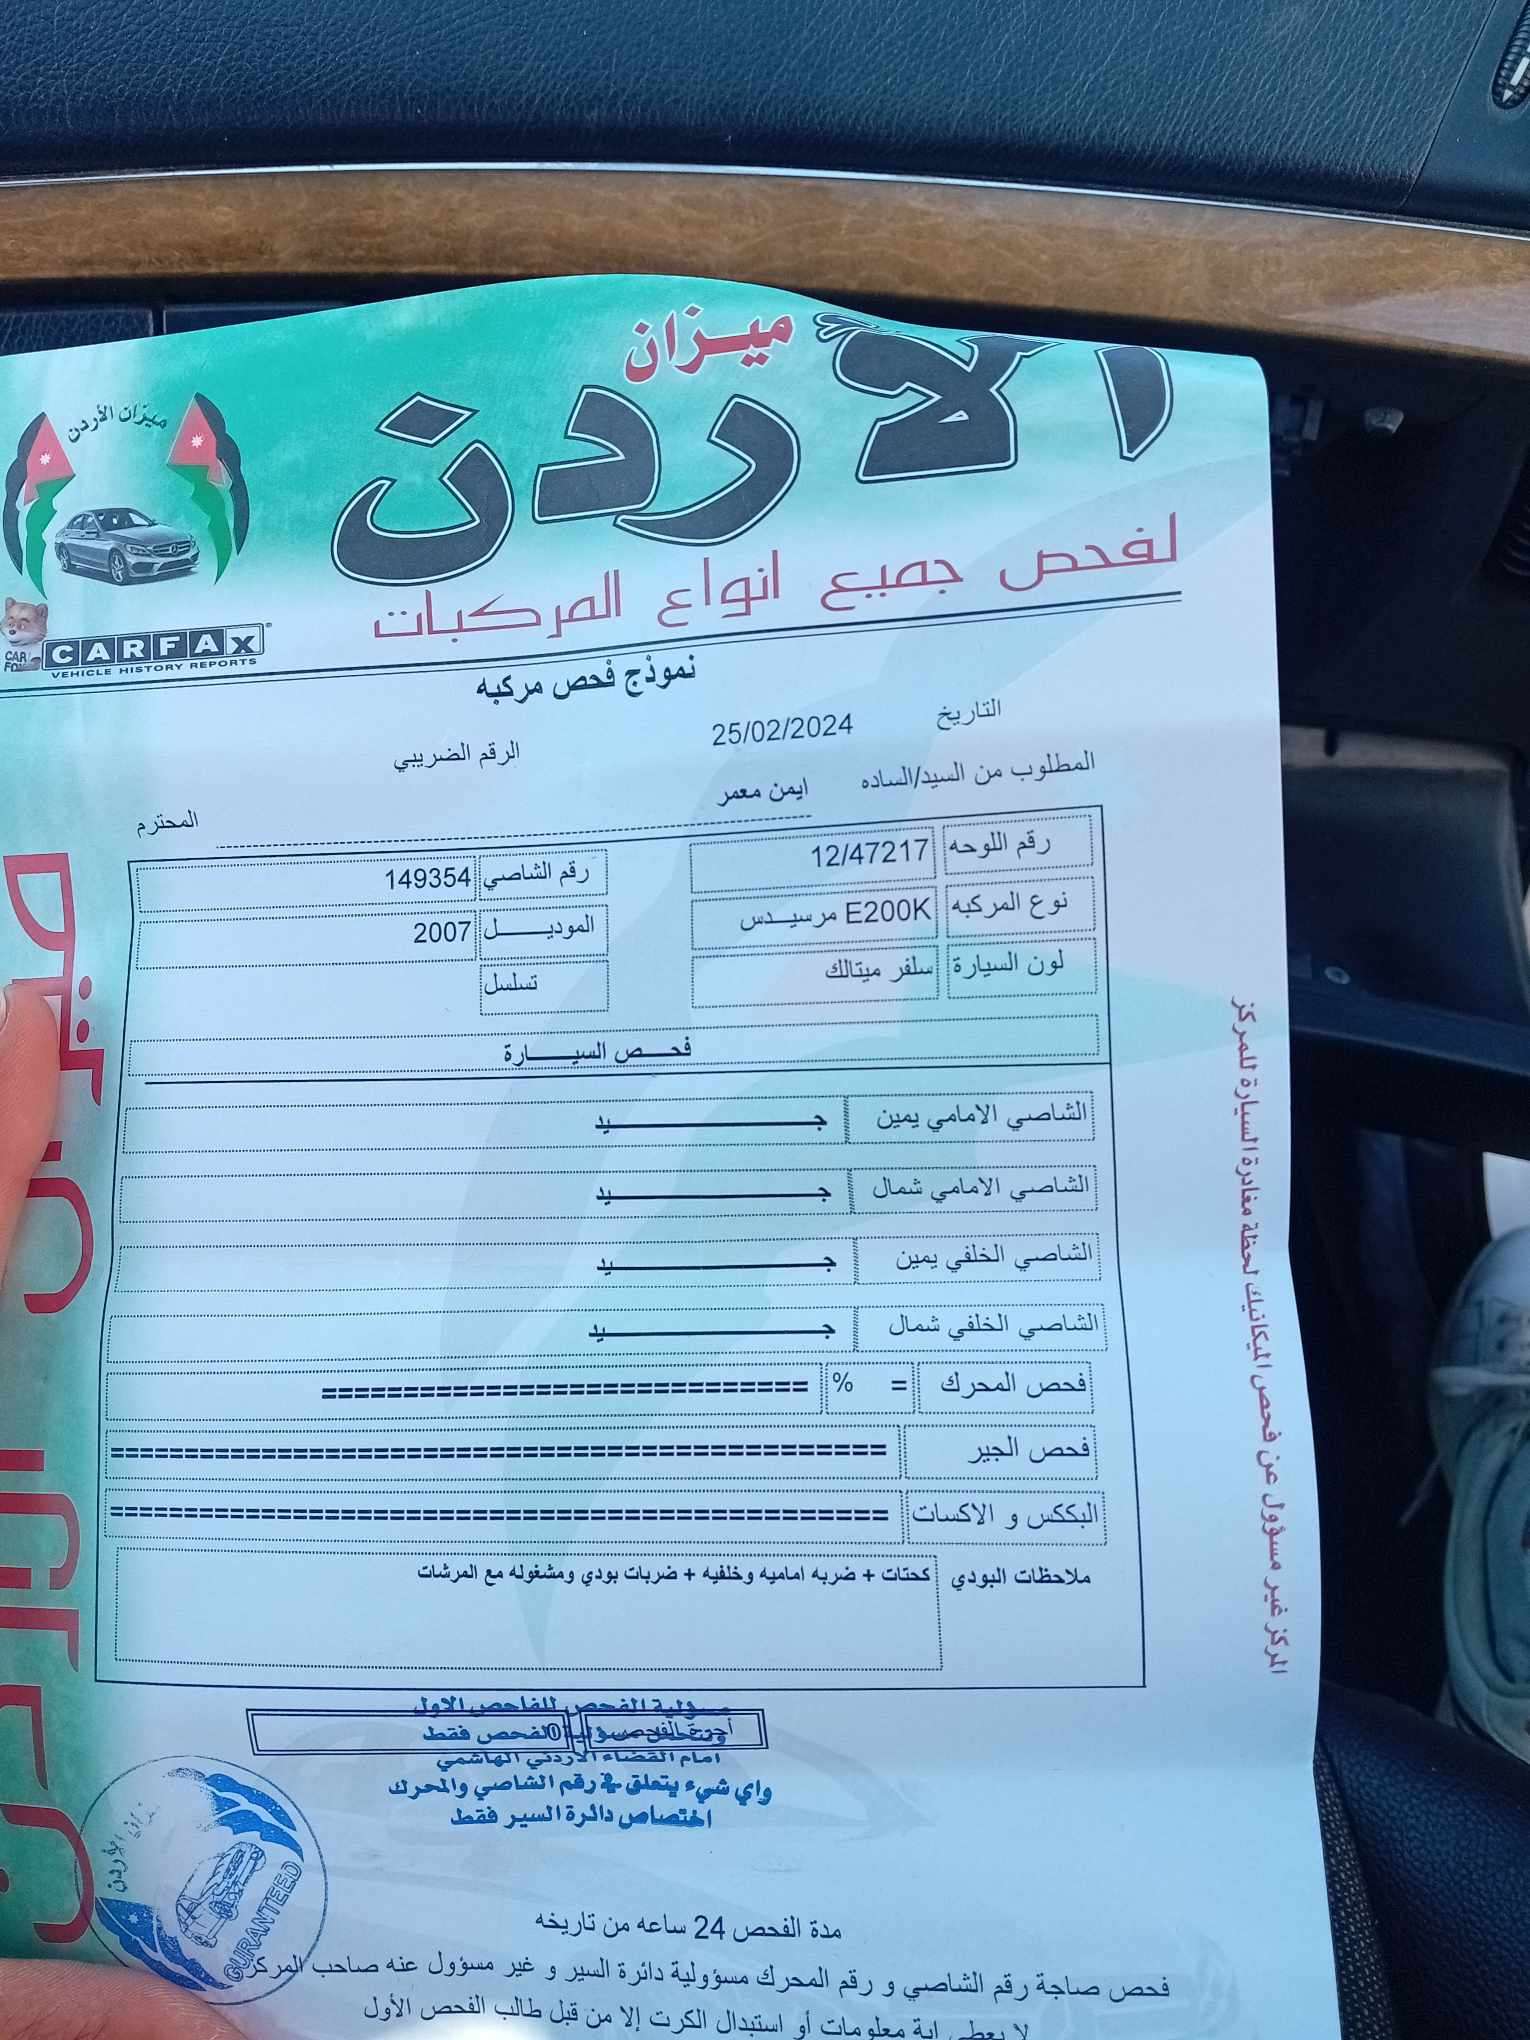 ميزان
الأردن
ميزان الأردن
لفحص جميع انواع المركبات
CAR FOX
CARFAX
VEHICLE HISTORY REPORTS
نموذج فحص مركبه
التاريخ 25/02/2024
الرقم الضريبي
المطلوب من السيد/الساده ايمن معمر
المحترم
رقم اللوحه 12/47217 رقم الشاصي 149354
نوع المركبه E200K مرسيــدس الموديــــل 2007
لون السيارة سلفر ميتالك تسلسل
فحـــص السيـــــارة
الشاصي الامامي يمين جـــــــــــــــــــيد
الشاصي الامامي شمال جـــــــــــــــــــيد
الشاصي الخلفي يمين جـــــــــــــــــــيد
الشاصي الخلفي شمال جـــــــــــــــــــيد
فحص المحرك = % ==============================
فحص الجير ================================================
البككس و الاكسات ================================================
ملاحظات البودي كحتات + ضربه اماميه وخلفيه + ضربات بودي ومشغوله مع المرشات
مسؤلية الفحص للفاحص الاول
أجرة الفحص
الفحص فقط
امام القضاء الأردني الهاشمي
واي شيء يتعلق في رقم الشاصي والمحرك
اختصاص دائرة السير فقط
GURANTEED
مدة الفحص 24 ساعه من تاريخه
فحص صاجة رقم الشاصي و رقم المحرك مسؤولية دائرة السير و غير مسؤول عنه صاحب المركز
لا يعطى اية معلومات أو استبدال الكرت إلا من قبل طالب الفحص الأول
المركز غير مسؤول عن فحص الميكانيك لحظة مغادرة السيارة للمركز
ميزان الأردن